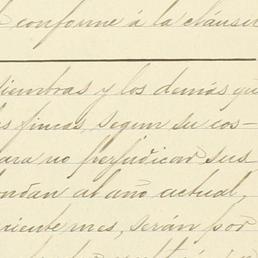 conforme á la cláusu
siembras y los demás qu
s fincas, segun su cos-
ara no perjudicar sus
ondan al año actual,
uiente mes, serán por